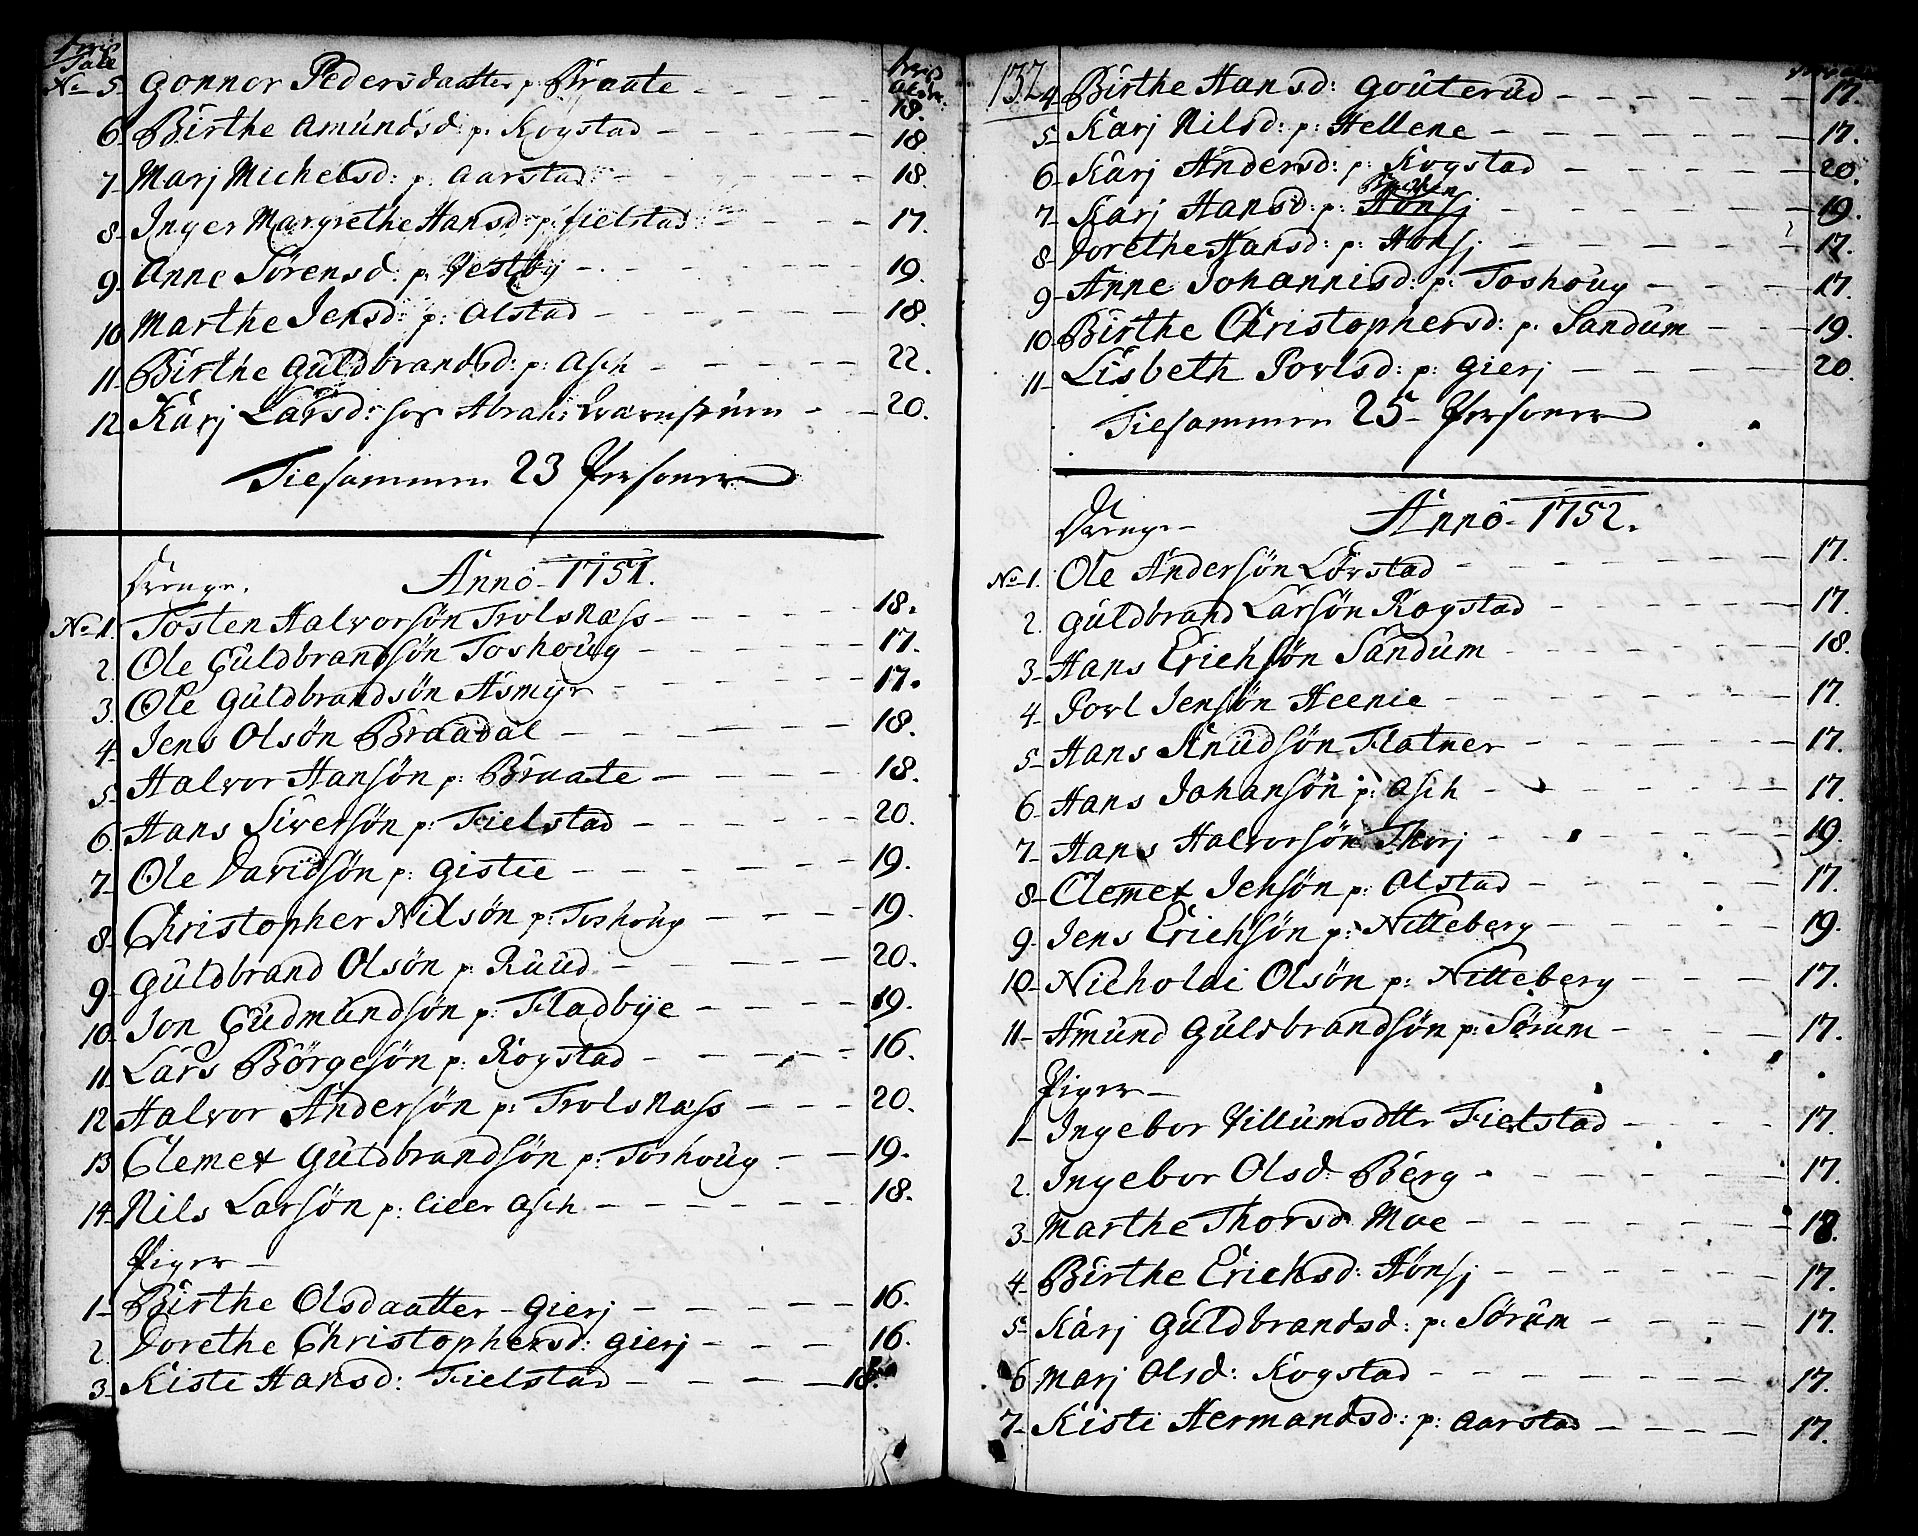 Tall
No 5 Gonnor Pedersdaatter p: Braate - - - 18.
6 Birthe Amundsd: p: Kogstad - - - 18
7 Marj Michelsd: p: Aarstad - - - 18.
8 Inger Margrethe Hansd: p: Fielstad - - 17.
9 Anne Sørensd: p: Vestby - - - 19.
10 Marthe Jensd: p: Olstad - - - 18.
11 Birthe Guldbrandsd: p: Asch - - - 22.
12 Karj Larsd: hos Abrah: - - 20.
Tilsammen 23 Personer
Drenge. Anno 1751.
No 1. Tosten Halvorsøn Trolsnæss - - - 18.
2. Ole Guldbrandsøn Toshoug - - - 17.
3. Ole Guldbrandsøn Asmyr - - - 17.
4 Jens Olsøn Braadal - - - 18.
5 Halvor Hansøn p: Braate - - - 18.
6 Hans Siversøn p: Fielstad - - - 20.
7 Ole Davidsøn p: Gistie - - - 19.
8 Christopher Nilsøn p: Toshoug - - - 19.
9 Guldbrand Olsøn p: Ruud - - - 20.
10 Jon Gudmundsøn p: Fladbye - - - 19.
11 Lars Børgesøn p: Kogstad - - - 16.
12 Halvor Andersøn p: Trolsnæss - - - 20.
13 Clemet Guldbrandsøn p: Toshoug - - - 19.
14 Nils Larsøn p: Lille Asch - - - 18.
Piger
1 Birthe Olsdaatter Gierj - - - 16.
2. Dorethe Christophersd: Gierj - - - 16.
3 Kisti Hansd: Fielstad - - - 18.
132
4 Birthe Hansd: Gouterud - - - 17.
5 Karj Nilsd: p: Hellene - - - 17.
6 Karj Andersd: p: Kogstad - - - 20.
7 Karj Hansd: p: Hønsj - - - 19.
8 Dorethe Hansd: p: Hønsj - - - 17.
9 Anne Johannisd: p: Toshoug - - - 17.
10 Birthe Christophersd: p: Sandum - - - 19.
11 Lisbeth Povlsd: p: Gierj - - - 20.
Tilsammen 25 Personer
Drenge Anno 1752.
No 1. Ole Andersøn Lørstad - - - 17.
2. Guldbrand Larsøn Kogstad - - - 17.
3 Hans Erichsøn Sandum - - - 18.
4 Povl Jensøn Heenie - - - 17.
5 Hans Knudsøn Flatner - - - 17.
6 Hans Johansøn p: Asch - - - 17.
7 Hans Halvorsøn Thorj - - - 19.
8 Clemet Jensøn p: Olstad - - - 17.
9 Jens Erichsøn p: Nitteberg - - - 19.
10 Nicholai Olsøn p: Nitteberg - - - 17.
11 Amund Guldbrandsøn p: Sørum - - - 17.
Piger
1 Ingebor Villumsdttr Fielstad - - - 17.
2. Ingebor Olsd: Berg - - - 17.
3 Marthe Thorsd: Moe - - - 18.
4 Birthe Erichsd: Hønsj - - - 17.
5 Karj Guldbrandsd: p: Sørum - - - 17.
6 Marj Olsd: Kogstad - - - 17.
7 Kisti Hermandsd: p: Aarstad - - - 17.